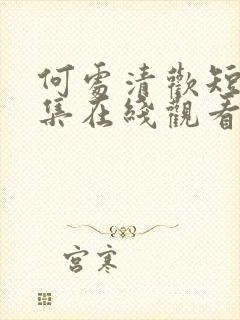 何處清歡短
集在綫觀看
宮寒